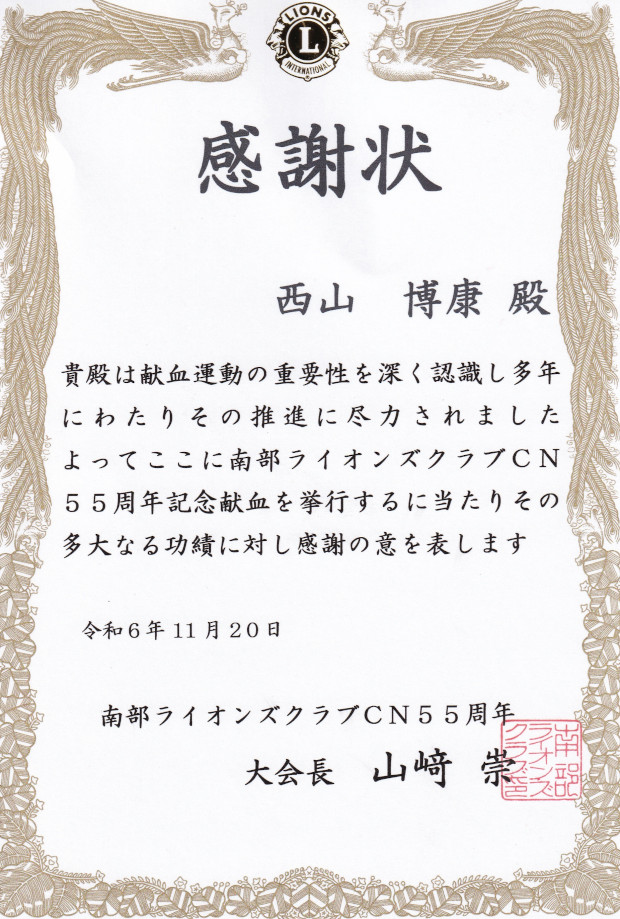 LIONS
L
INTERNATIONAL
感謝状
西山　博康 殿
貴殿は献血運動の重要性を深く認識し多年
にわたりその推進に尽力されました
よってここに南部ライオンズクラブCN
55周年記念献血を挙行するに当たりその
多大なる功績に対し感謝の意を表します
令和6年11月20日
南部ライオンズクラブCN55周年
大会長　山﨑 崇
南部
ライオンズ
クラブ印